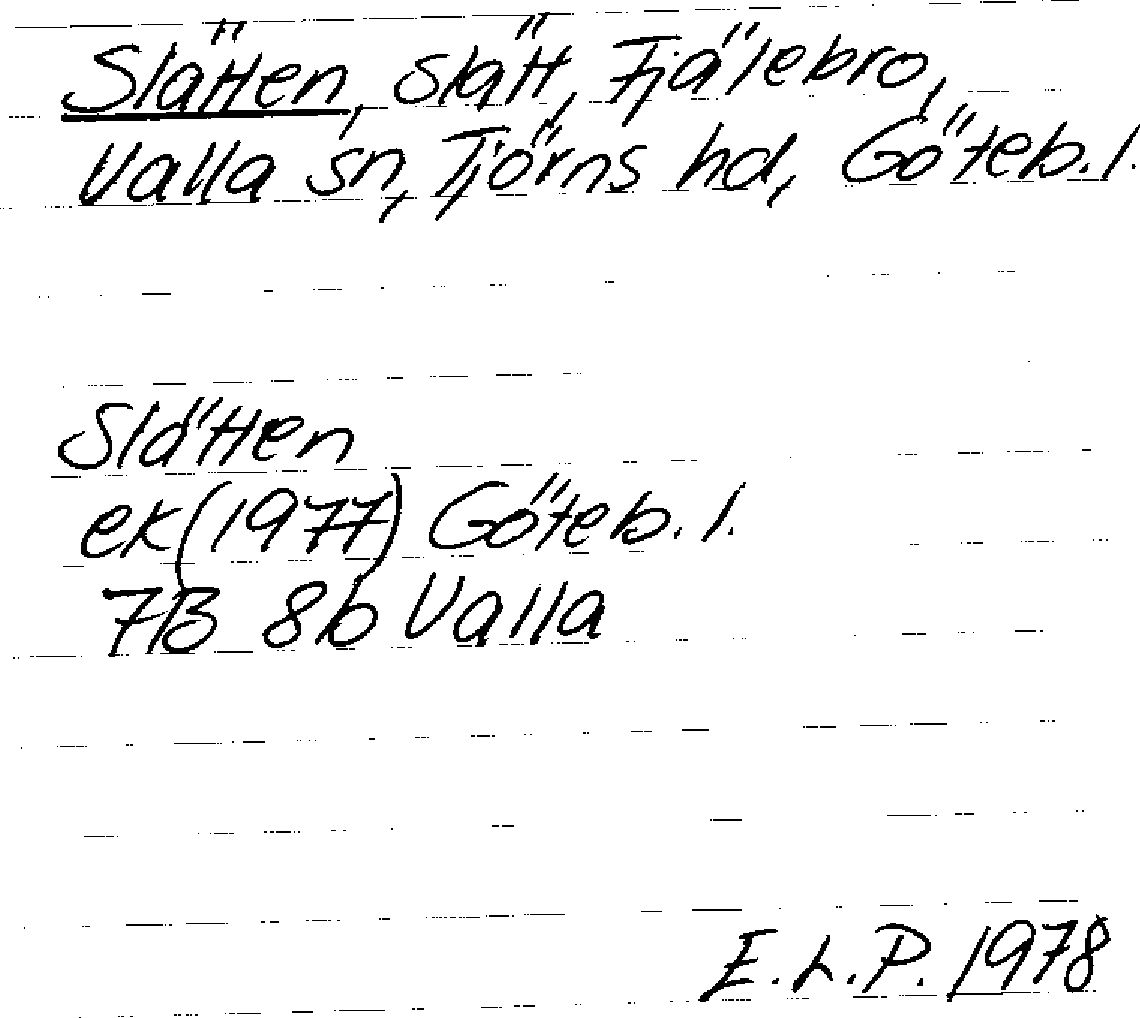 Slätten, slätt, Fjälebro,
Valla sn, Tjörns hd, Göteb. l.
Slätten
ek (1977) Göteb. l.
7B 8b Valla
E.L.P. 1978